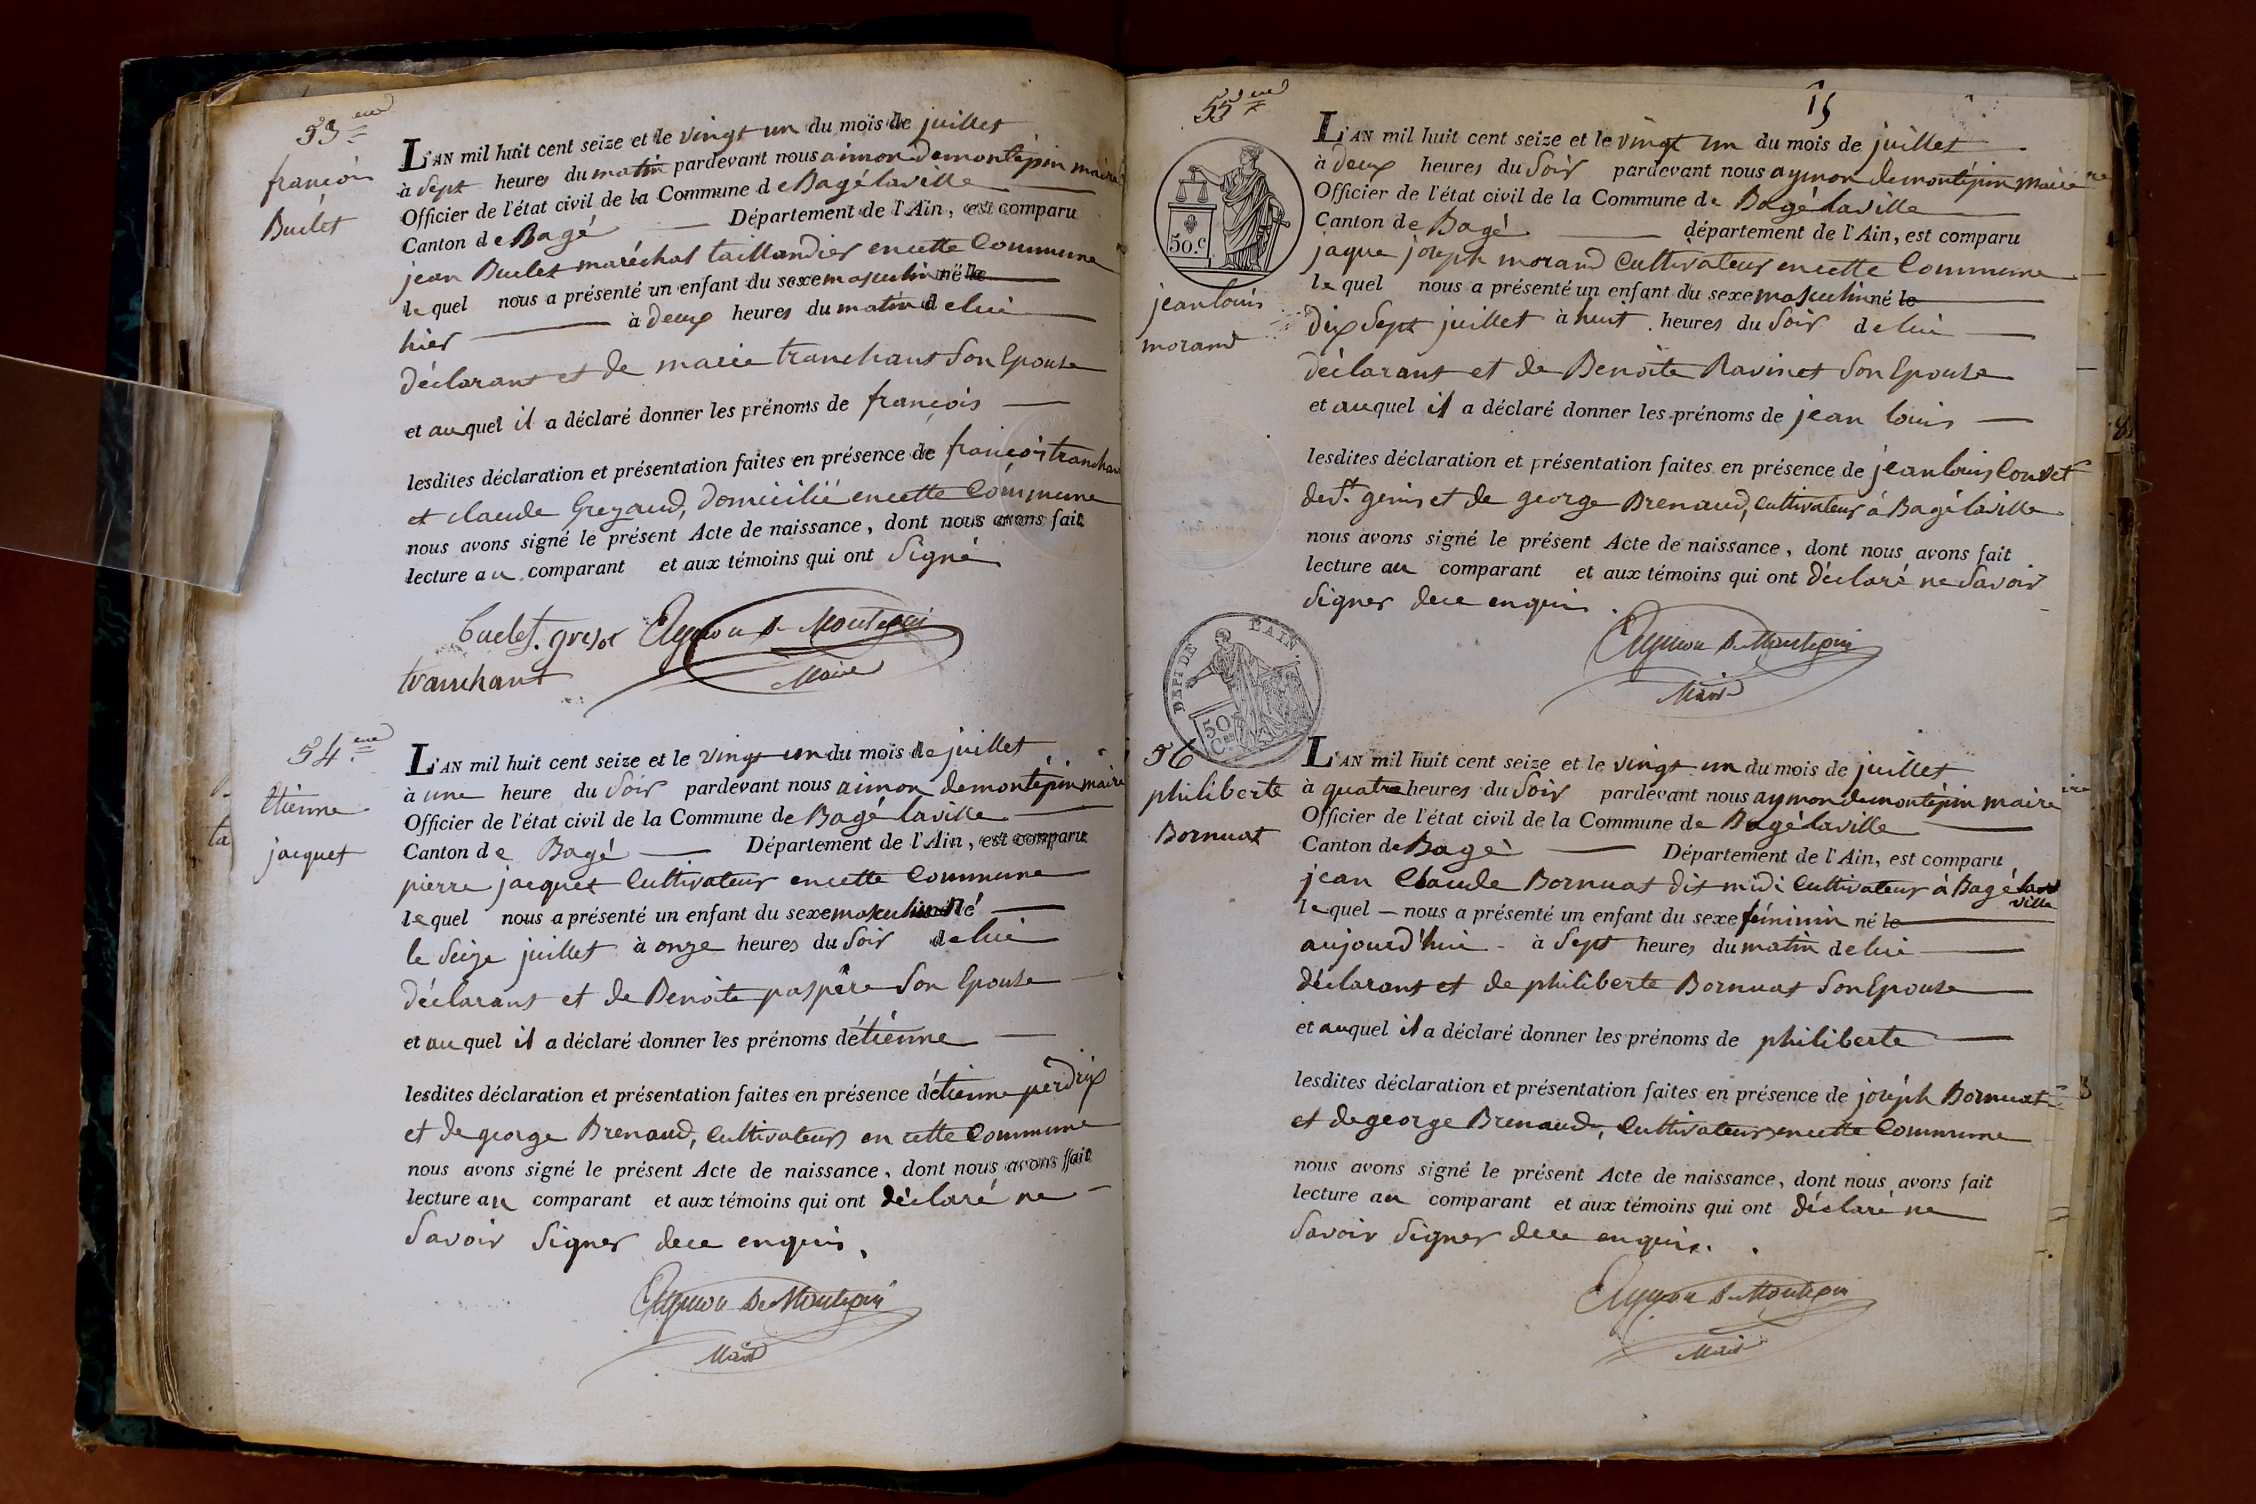 53eme
françois
Buclet
L'AN mil huit cent seize et le vingt un du mois de juillet
à sept heures du matin pardevant nous aimon demontépin maire
Officier de l'état civil de la Commune de Bagé laville
Canton de Bagé Département de l'Ain, est comparu
jean Buclet maréchal taillandier en cette Commune
lequel nous a présenté un enfant du sexe masculin né le
hier à deux heures du matin de lui
déclarant et de marie tranchant Son Epouse
et auquel il a déclaré donner les prénoms de françois
lesdites déclaration et présentation faites en présence de françois tranchant
et claude Greyaud, domicilié en cette Commune
nous avons signé le présent Acte de naissance, dont nous avons fait
lecture au comparant et aux témoins qui ont Signé
buclet
Aymon De Montepin
tranchant
Maire
54.eme
Etienne
jacquet
L'AN mil huit cent seize et le vingt un du mois de juillet
à une heure du Soir pardevant nous aimon demontépin maire
Officier de l'état civil de la Commune de Bagé laville
Canton de Bagé Département de l'Ain, est comparu
pierre jacquet Cultivateur en cette Commune
lequel nous a présenté un enfant du sexe masculin né
le Seize juillet à onze heures du Soir de lui
déclarant et de Benoite paspère Son Epouse
et auquel il a déclaré donner les prénoms d'étienne
lesdites déclaration et présentation faites en présence d'étienne perdrix
et de george Brenaud, Cultivateurs en cette Commune
nous avons signé le présent Acte de naissance, dont nous avons fait
lecture au comparant et aux témoins qui ont déclaré ne
Savoir Signer de ce enquis.
Aymon De Montepin
Maire
15
55eme
50.c
jean louis
morand
L'AN mil huit cent seize et le vingt un du mois de juillet
à deux heures du Soir pardevant nous aymon demontépin Maire
Officier de l'état civil de la Commune de Bagé laville
Canton de Bagé département de l'Ain, est comparu
jaque joseph morand Cultivateur en cette Commune
lequel nous a présenté un enfant du sexe masculin né le
dix Sept juillet à huit heures du Soir de lui
déclarant et de Benoite Ravinet Son Epouse
et auquel il a déclaré donner les prénoms de jean louis
lesdites déclaration et présentation faites en présence de jean louis Couvet
de St. genis et de george Brenaud, Cultivateur à Bagé laville
nous avons signé le présent Acte de naissance, dont nous avons fait
lecture au comparant et aux témoins qui ont déclaré ne Savoir
Signer de ce enquis.
Aymon De Montepin
Maire
DEPT DE L'AIN.
50 Ces
56
philiberte
Bornuat
L'AN mil huit cent seize et le vingt un du mois de juillet
à quatre heures du Soir pardevant nous aymon demontépin maire
Officier de l'état civil de la Commune de Bagé laville
Canton de Bagé Département de l'Ain, est comparu
jean Claude Bornuat dit midi Cultivateur à Bagé la
ville
lequel nous a présenté un enfant du sexe féminin né le
aujourd'hui à Sept heures du matin de lui
déclarant et de philiberte Bornuat Son Epouse
et auquel il a déclaré donner les prénoms de philiberte
lesdites déclaration et présentation faites en présence de joseph Bornuat
et de george Brenaud, Cultivateurs en cette Commune
nous avons signé le présent Acte de naissance, dont nous avons fait
lecture au comparant et aux témoins qui ont déclaré ne
Savoir Signer de ce enquis.
Aymon De Montepin
Maire